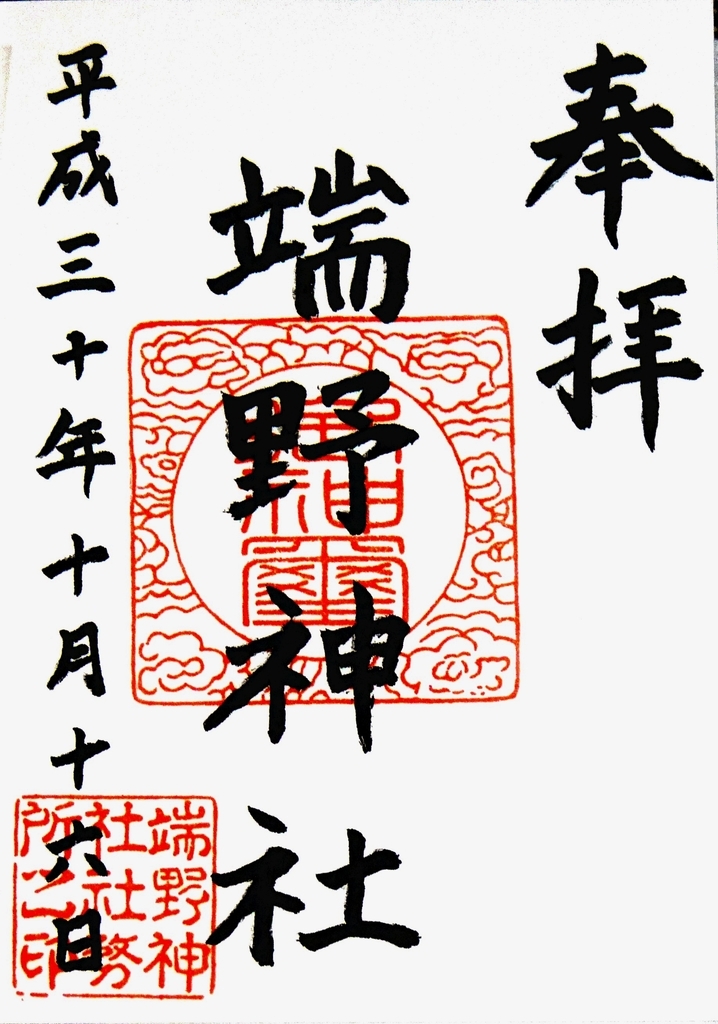 奉拝
端野神社
平成三十年十月十六日
端野神
社社務
所之印